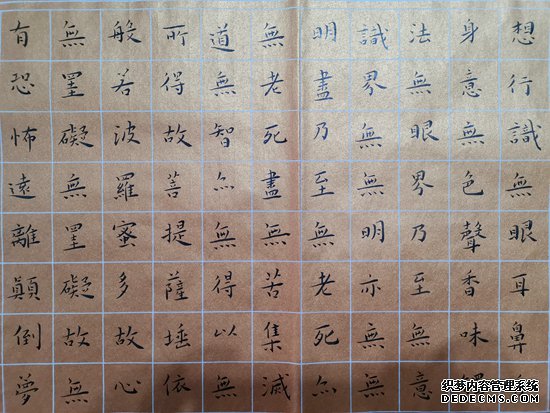 想行識無眼耳鼻
身意無色聲香味
法無眼界乃至無意
識界無無明亦無無
明盡乃至無老死亦
無老死盡無苦集滅
道無智亦無得以無
所得故菩提薩埵依
般若波羅蜜多故心
無罣礙無罣礙故無
有恐怖遠離顛倒夢
织梦内容管理系统
DEDECMS.COM